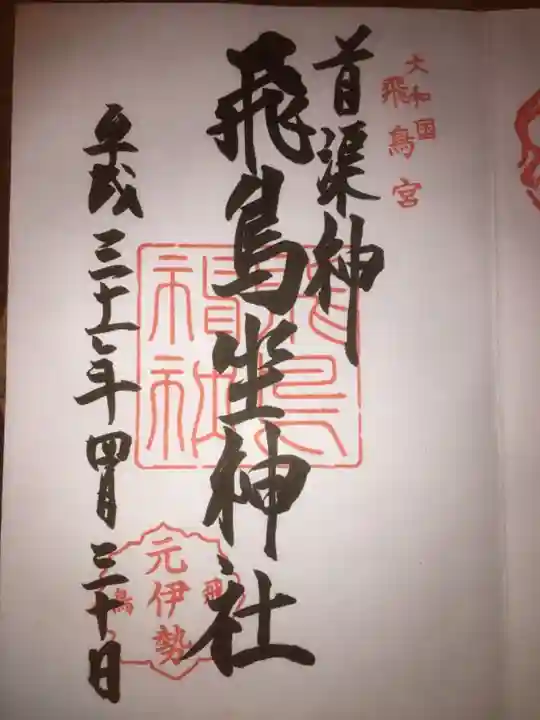 大和国
飛鳥宮
首渠神
飛鳥坐神社
平成三十一年四月三十日
飛
元伊勢
鳥